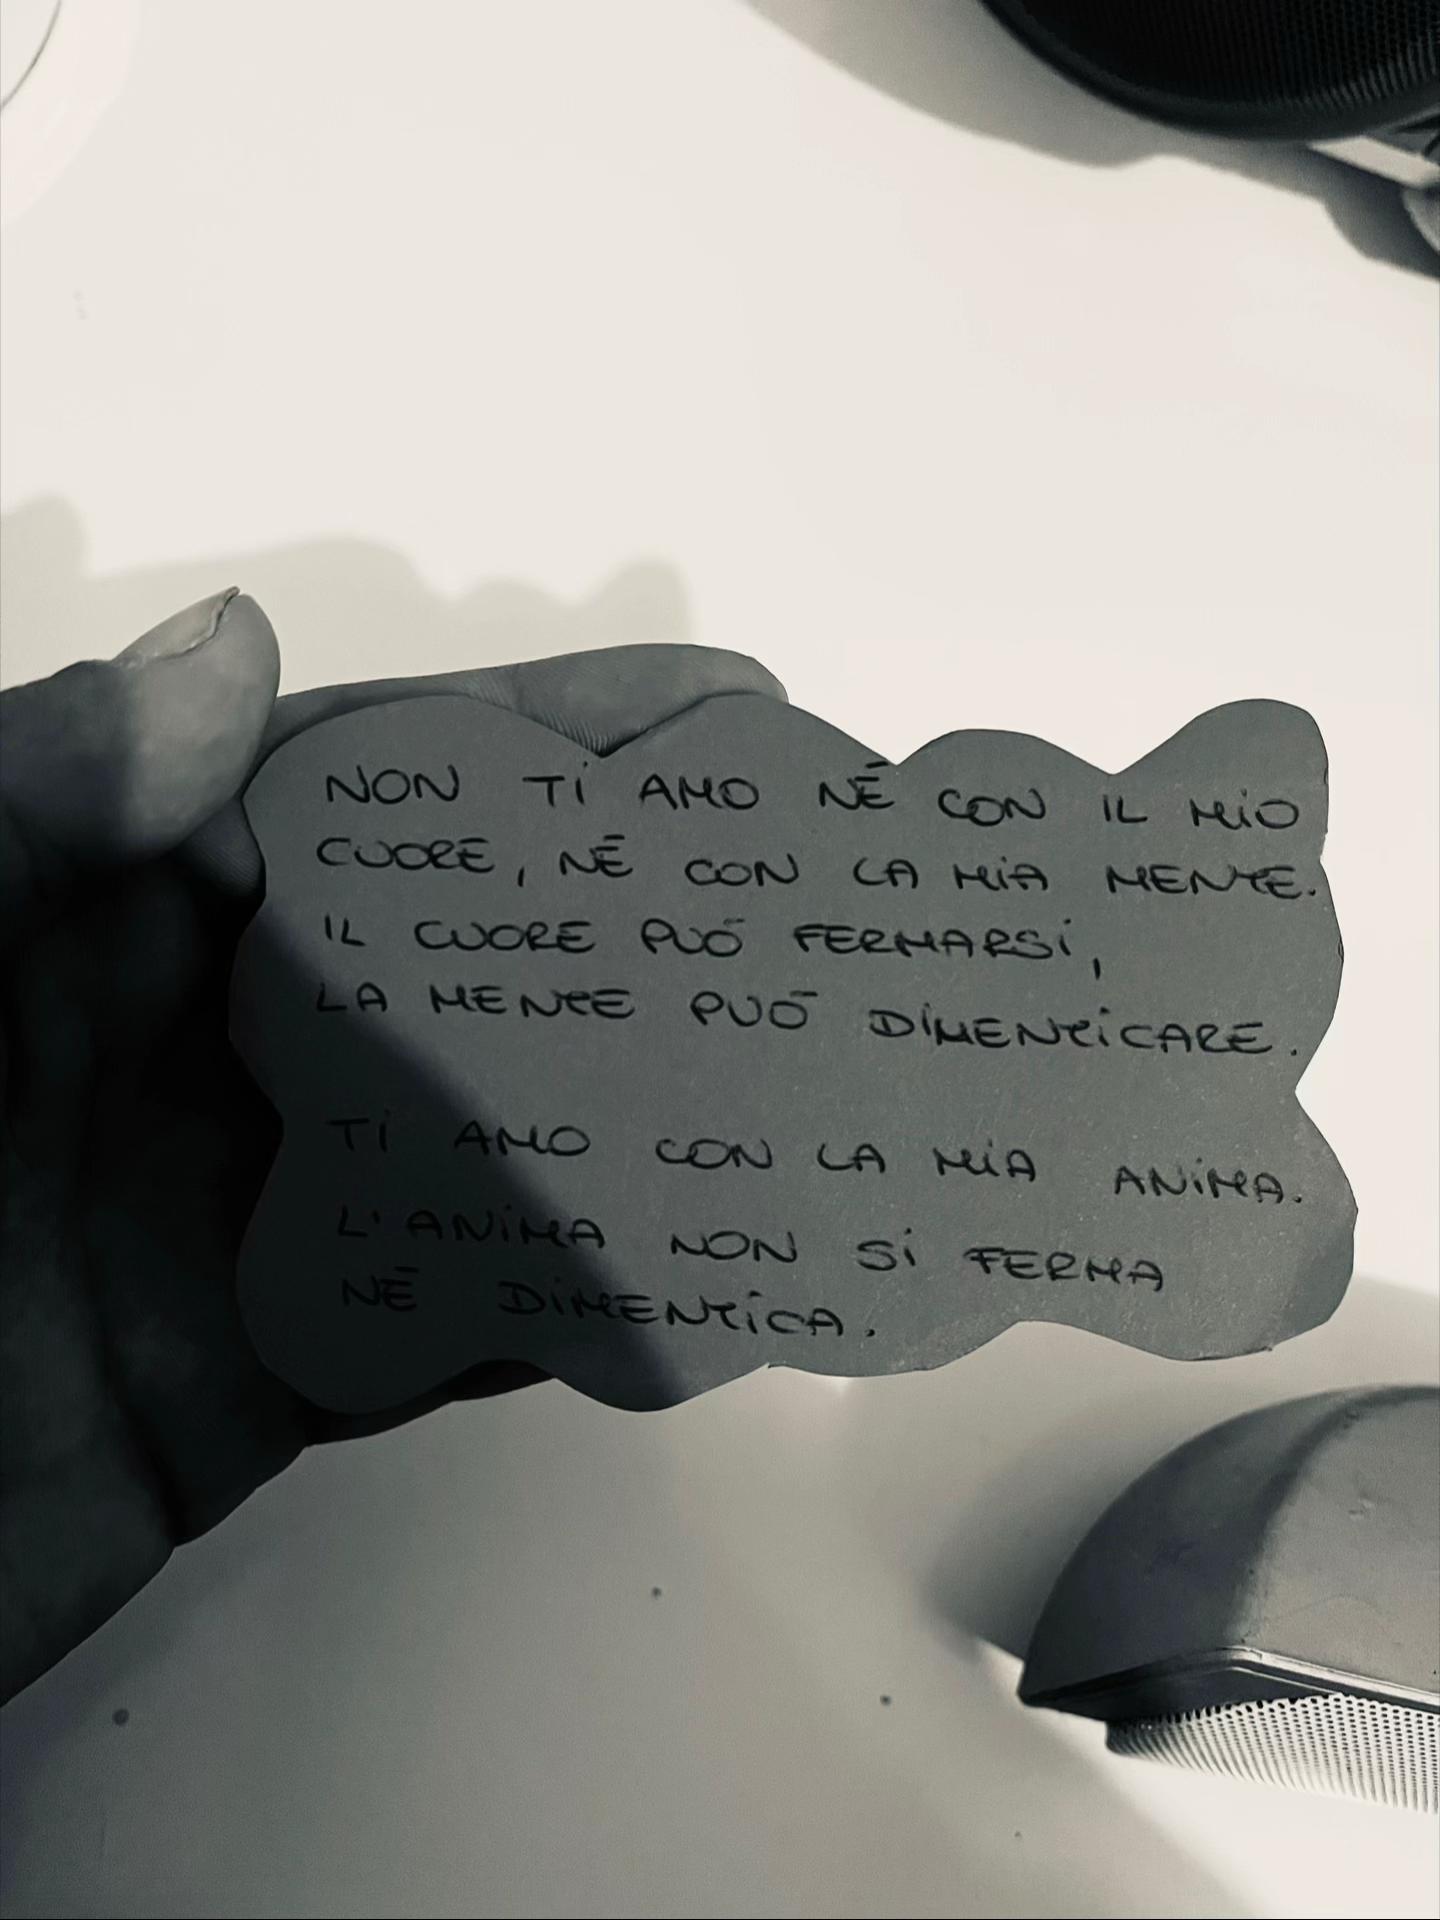 NON TI AMO NÉ CON IL MIO
CUORE, NÉ CON LA MIA MENTE.
IL CUORE PUÓ FERMARSI,
LA MENTE PUÓ DIMENTICARE.
TI AMO CON LA MIA ANIMA.
L'ANIMA NON SI FERMA
NÉ DIMENTICA.